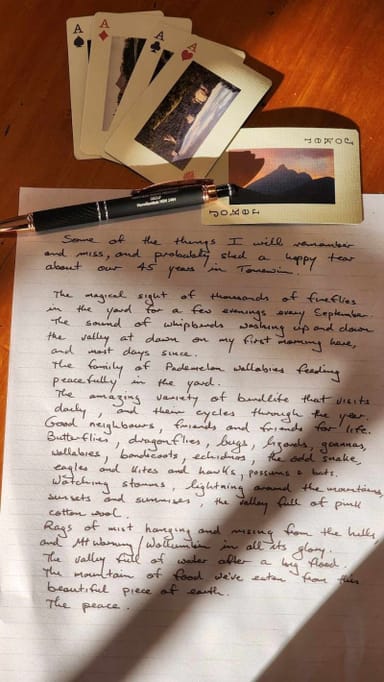 A
A
A
A
JOKER
JOKER
Murwillumbah NSW 2484
Some of the things I will remember
and miss, and probably shed a happy tear
about our 45 years in Tomewin.
The magical sight of thousands of fireflies
in the yard for a few evenings every September.
The sound of whipbirds washing up and down
the valley at dawn on my first morning here,
and most days since.
The family of Pademelon wallabies feeding
peacefully in the yard.
The amazing variety of birdlife that visits
daily, and their cycles through the year.
Good neighbours, friends and friends for life.
Butterflies, dragonflies, bugs, lizards, goannas,
wallabies, bandicoots, echidnas, the odd snake,
eagles and kites and hawks, possums & bats.
Watching storms, lightning around the mountains,
sunsets and sunrises, the valley full of pink
cotton wool.
Rags of mist hanging and rising from the hills,
and Mt Warning/Wollumbin in all its glory.
The valley full of water after a big flood.
The mountain of food we've eaten from this
beautiful piece of earth.
The peace.